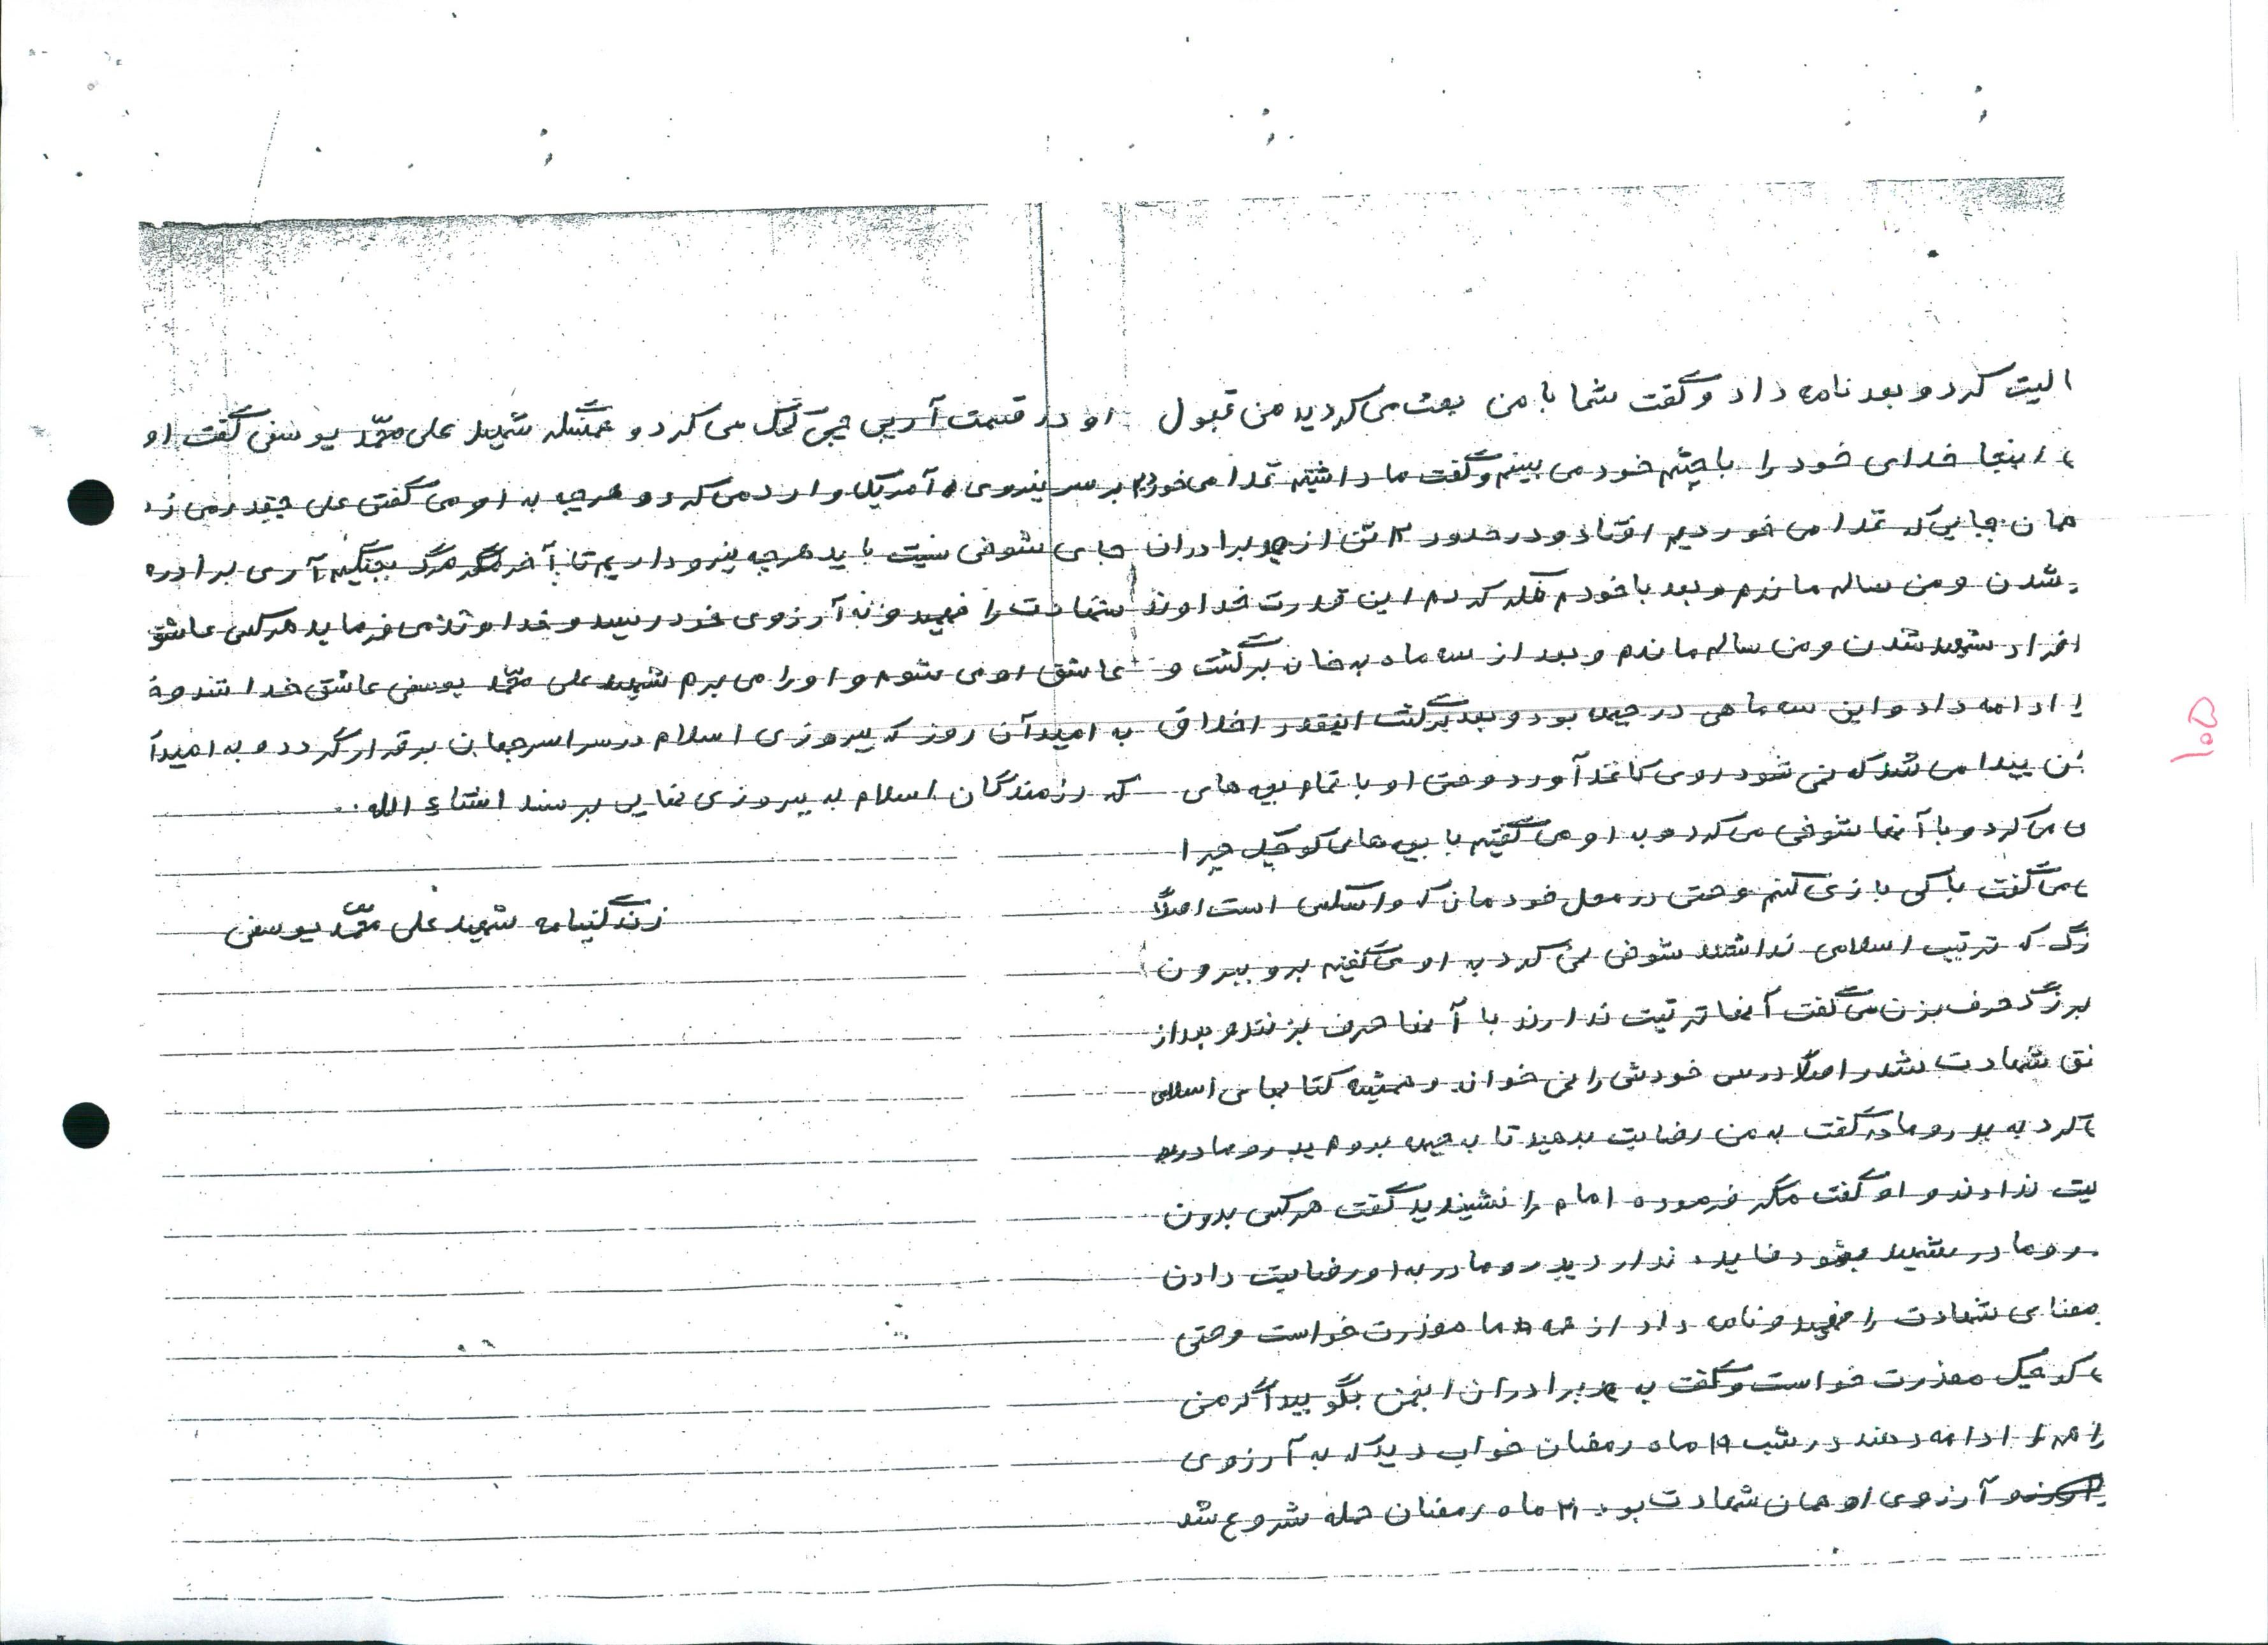 الیت کرد و بعد نامه داد و گفت شما با من بحث می کردید من قبول
اینجا خدای خود را با چشم خود می بینم و گفت ما داشتیم غذا می خوردیم
همان جایی که غذا می خوردیم افتاد و در حدود ۳ تن از برادران
شدن و من سالم ماندم و بعد با خودم فکر کردم این قدرت خداوند
افراد شهید شدن و من سالم ماندم و بعد از سه ماه به خان برگشت و
را ادامه داد و این سه ماهی در جبهه بود و بعد برگشت اینقدر اخلاق
پیدا می شد که نمی شود روی کاغذ آورد و حتی او با تمام بچه های
می کرد و با آنها شوخی می کرد و به او می گفتیم با بچه های کوچک چرا
می گفت با کی بازی کنم و حتی در محل خودمان که است اصلاً
زگ که تربیت اسلامی نداشتند شوخی نمی کرد به او می گفتیم برو بیرون
بزرگ حرف بزن می گفت آنها تربیت ندارند با آنها حرف بزنند و بعد از
شهادت شد و اصلاً درس خودش را نمی خواند و همیشه کتابهای اسلامی
کرد به پدر و مادر گفت به من رضایت بدهید تا به جبهه بروم پدر و مادرم
یت ندادند و او گفت مگر فرموده امام را نشیندید گفت هر کس بدون
ر و مادر شهید بشود فایده ندارد پدر و مادر به او رضایت دادن
معنای شهادت را فهمید و نامه داد از همه ما معذرت خواست و حتی
کوچیک معذرت خواست و گفت به برادران انجمن بگویید اگر من
را ادامه دهند در شب ۱۹ ماه رمضان خواب دید که به آرزوی
آرزوی او همان شهادت بود ۲۱ ماه رمضان حمله شروع شد
او در قسمت آرپی جی کمک می کرد و شهید علی محمد یوسفی گفت او
بر سر نیروی آمریکا وارد می کرد و هر چه به او می گفتی علی چقدر می زن
جای شوخی نیست باید هر چه نیرو داریم تا آخر مرگ بجنگیم آری برادره
شهادت را فهمید و به آرزوی خود رسید و خداوند می فرماید هر کس عاشق
عاشق او می شوم و او را می برم شهید علی محمد یوسفی عاشق خدا شد و
به امید آن روز که پیروزی اسلام در سراسر جهان برقرار گردد و به امید آ
که رزمندگان اسلام به پیروزی نهایی برسند انشاء الله..
زندگینامه شهید علی محمد یوسفی